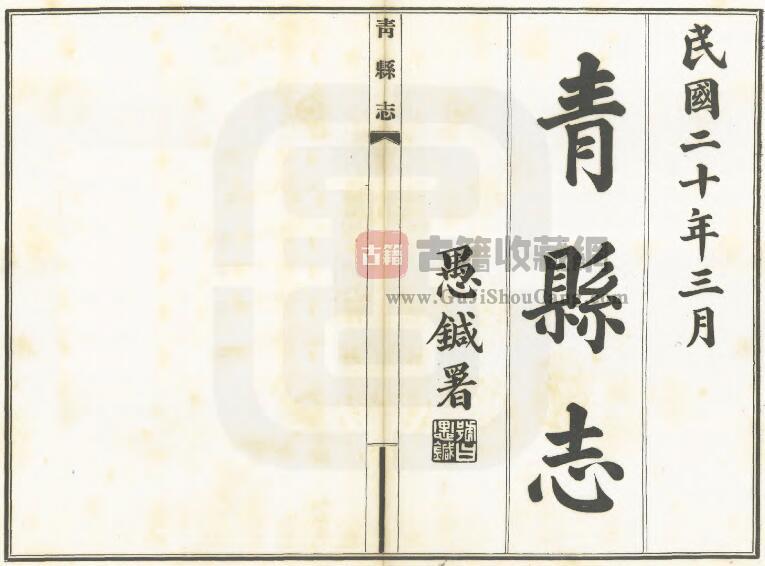 民國二十年三月
青縣志
愚鍼署
號曰愚鍼
青縣志
古籍
古籍收藏網
www.GuJiShouCang.com